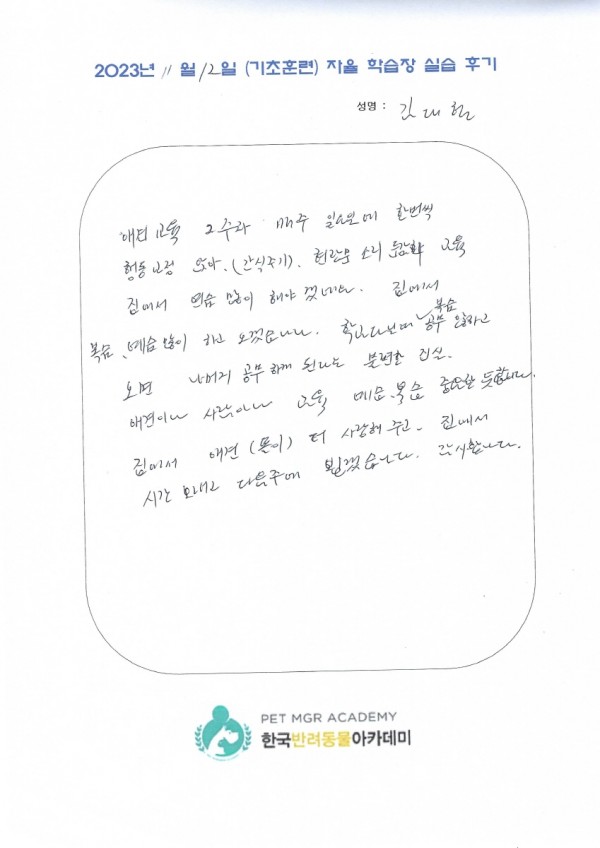 2023년 11월 12일 (기초훈련) 자율 학습장 실습 후기
성명 : 김대현
애견 교육 2주차 매주 일요일에 한번씩
행동 교정 앉아. (간식주기). 현관문 소리 둔감화 교육
집에서 연습 많이 해야 겠네요. 집에서
복습, 예습 많이 하고 오겠습니다. 학교다보며 복습 공부 안하고
오면 나머지 공부 하게 된다는 불편한 진실.
애견이나 사람이나 교육 예습.복습 중요한 듯합니다.
집에서 애견 (몽이) 더 사랑해 주고. 집에서
시간 보내고 다음주에 뵙겠습니다. 감사합니다.
PET MGR ACADEMY
한국반려동물아카데미